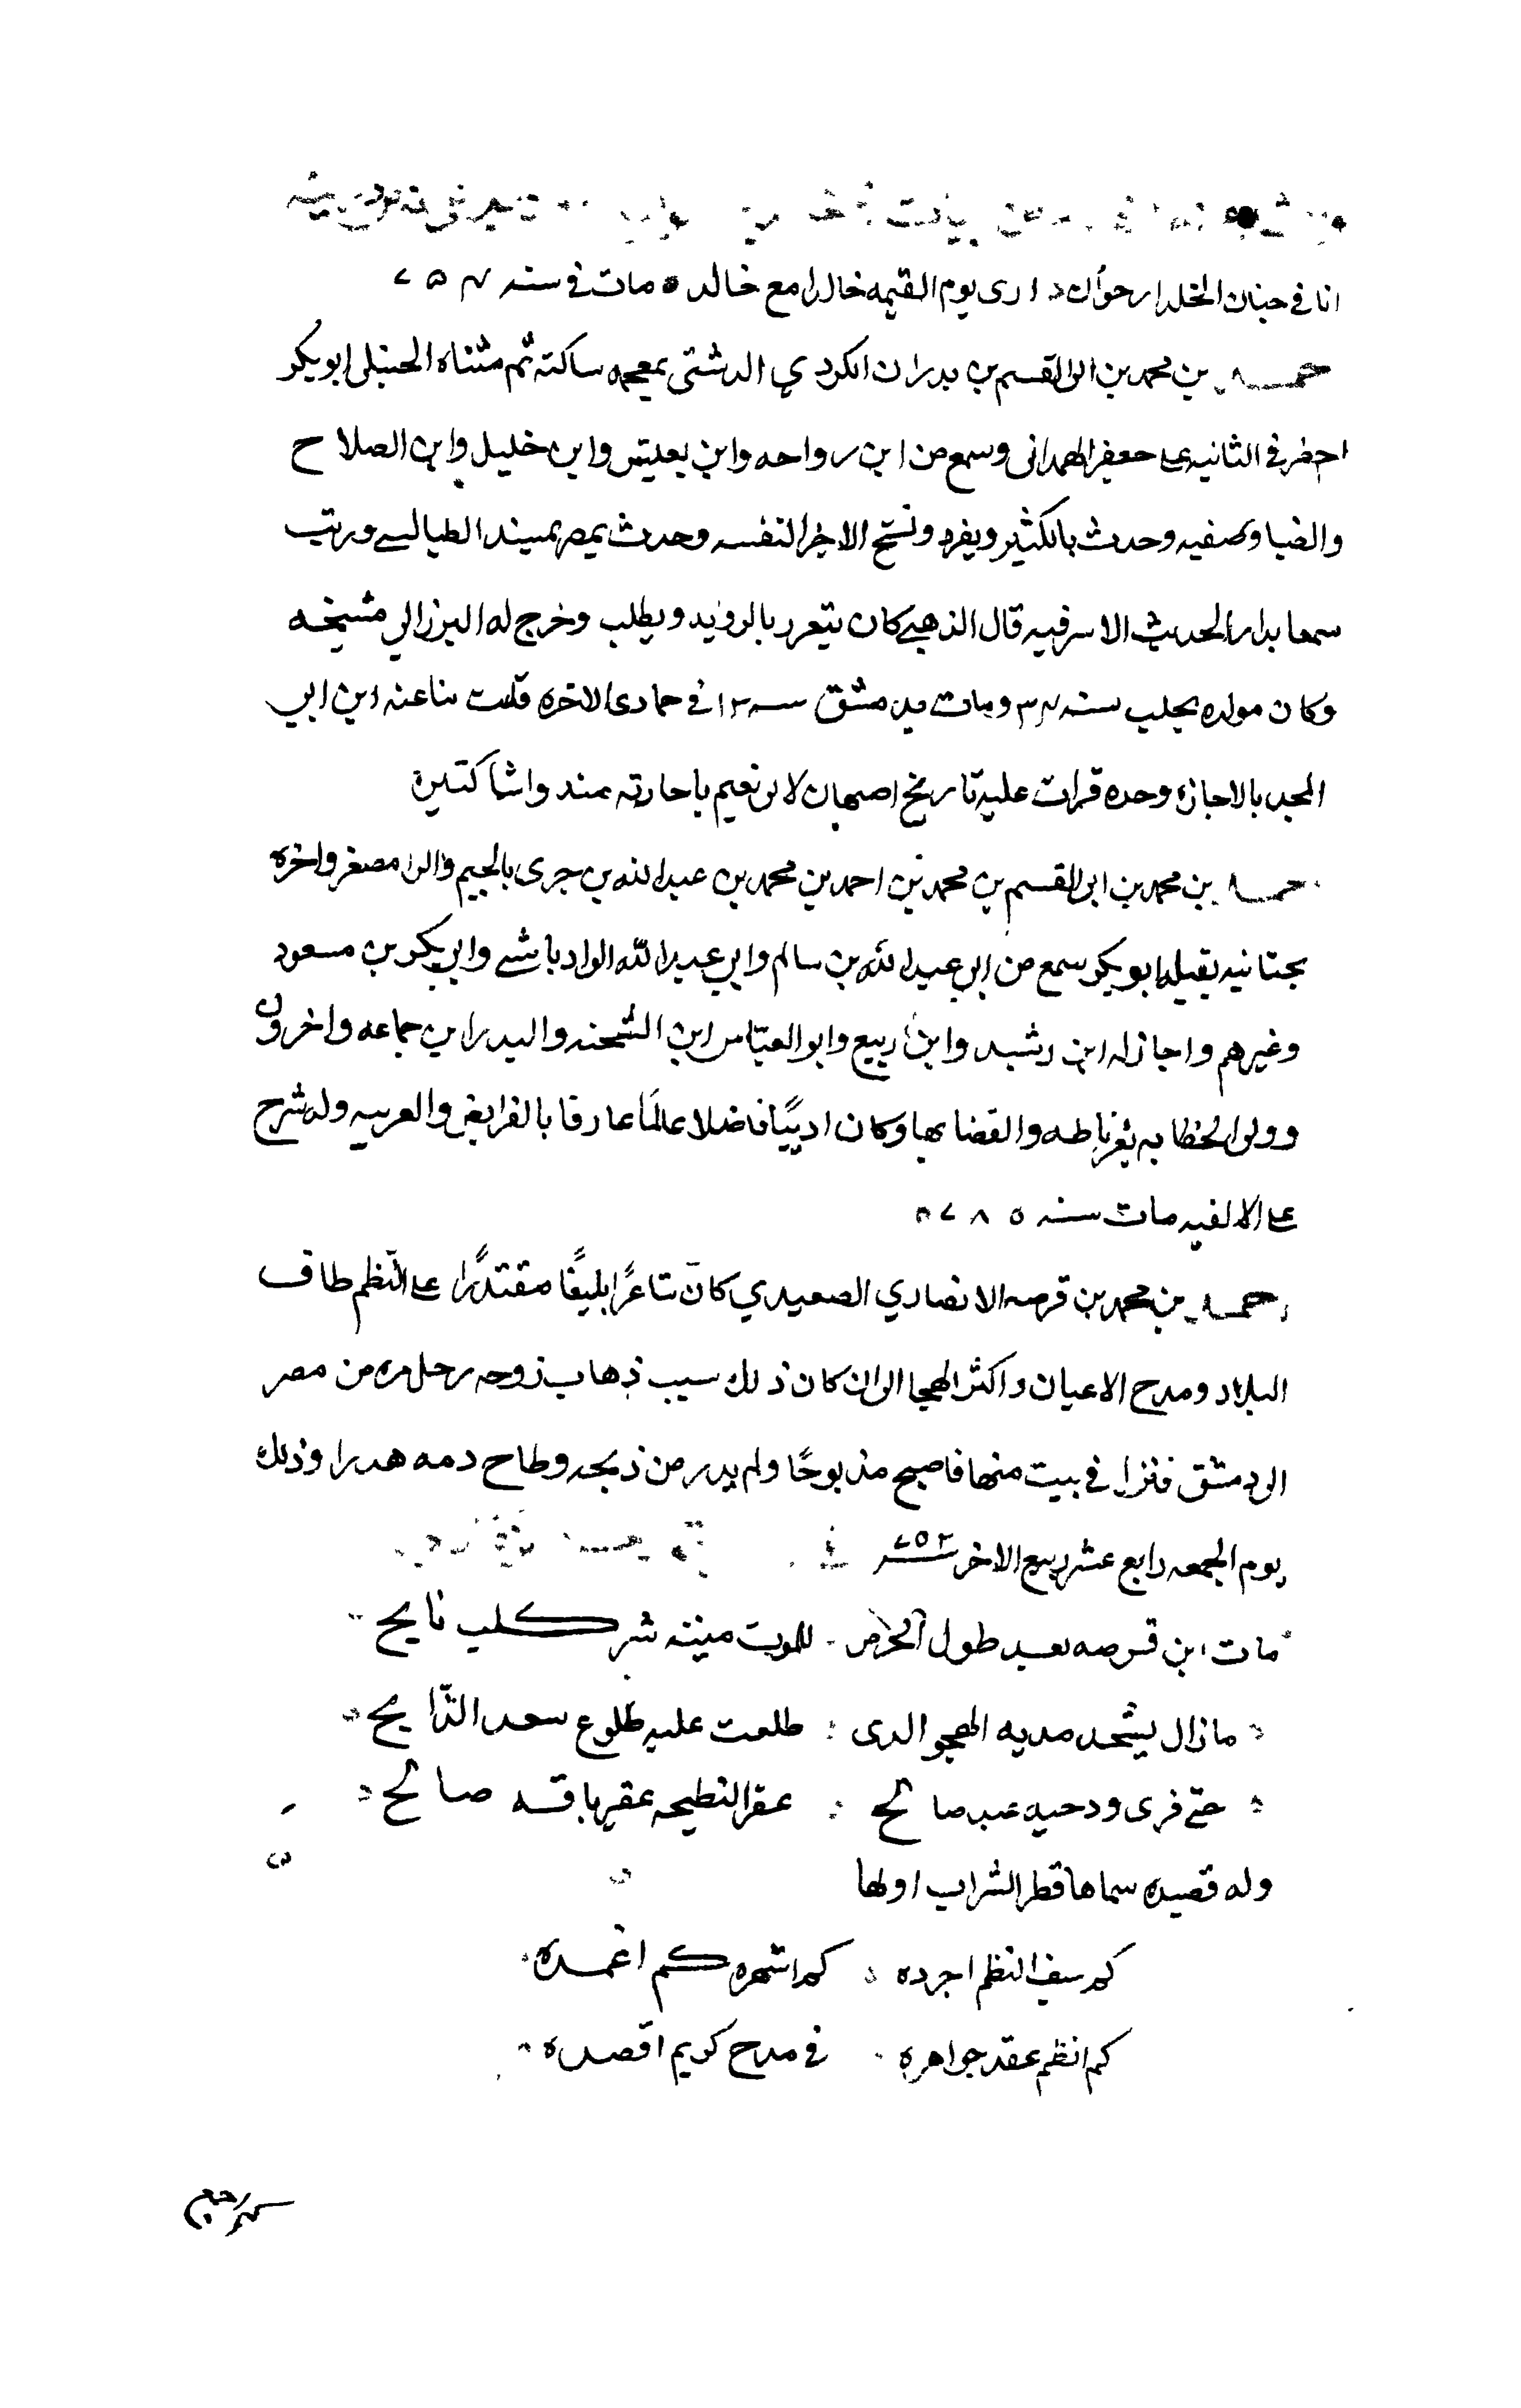 انا في جنان الخلد ارجو ان ارى يوم القيمه خالدا مع خالد مات في سنه ٧٥٤
احمد بن محمد بن ابى القسم بن بدران الكردي الدشتى بمعجمه ساكنه ثم مثناه الحنبلى ابو بكر
احضر فى الثانيه على جعفر الهمدانى وسمع من ابن رواحه وابن يعيش وابن خليل وابن الصلاح
والضيا وصفيه وحدث بالكثير وتفرد ونسخ الاجزا لنفسه وحدث بمصر بمسند الطيالسي ورتب
مسمعا بدار الحديث الاشرفيه قال الذهبي كان يتعزز بالروايه ويطلب وخرج له البرزالي مشيخه
وكان مولده بحلب سنه ٣٤ ومات بدمشق سنه ٧١٣ في جمادى الاخره قلت ثنا عنه ابن ابي
المجد بالاجازه وحده قرات عليه تاريخ اصبهان لابى نعيم باجازته منه واشيا كثيره
احمد بن محمد بن ابى القسم بن محمد بن احمد بن محمد بن عبد الله بن جزى بالجيم والزا مصغر واخره
تحتانيه ثقيله ابو بكر سمع من ابي عبد الله بن سالم وابي عبد الله الوادياشي وابي بكر بن مسعود
وغيرهم واجاز له ابن رشيد وابن ربيع وابو العباس ابن الشحنه والبدر ابن جماعه واخرون
وولى الخطابه بغرناطه والقضا بها وكان اديبًا فاضلا عالمًا عارفا بالفرايض والعربيه وله شرح
على الالفيه مات سنه ٧٨٥
احمد بن محمد بن قرصه الانصاري الصعيدي كان شاعرًا بليغًا مقتدرًا على النظم طاف
البلاد ومدح الاعيان واكثر الهجا الى ان كان ذلك سبب ذهاب زوحه رحل مره من مصر
الى دمشق فنزل في بيت منها فاصبح مذبوحًا ولم يدر من ذبحه وطاح دمه هدرا وذلك
يوم الجمعه رابع عشر ربيع الاخر سنه ٧٥٢
مات ابن قرصه بعد طول تعرض للموت ميتة شر كلب نابح
ما زال يشحد مديه الهجو الدى طلعت عليه طلوع سعد الذابح
حتى فرى ودجيه عبد صالح عقر النطيحه عقر ناقه صالح
وله قصيده سماها قطر الشراب اولها
كم سيف النظم اجرده كم اشهره كم اغمده
كم انظم عقد جواهره في مدح كريم اقصده